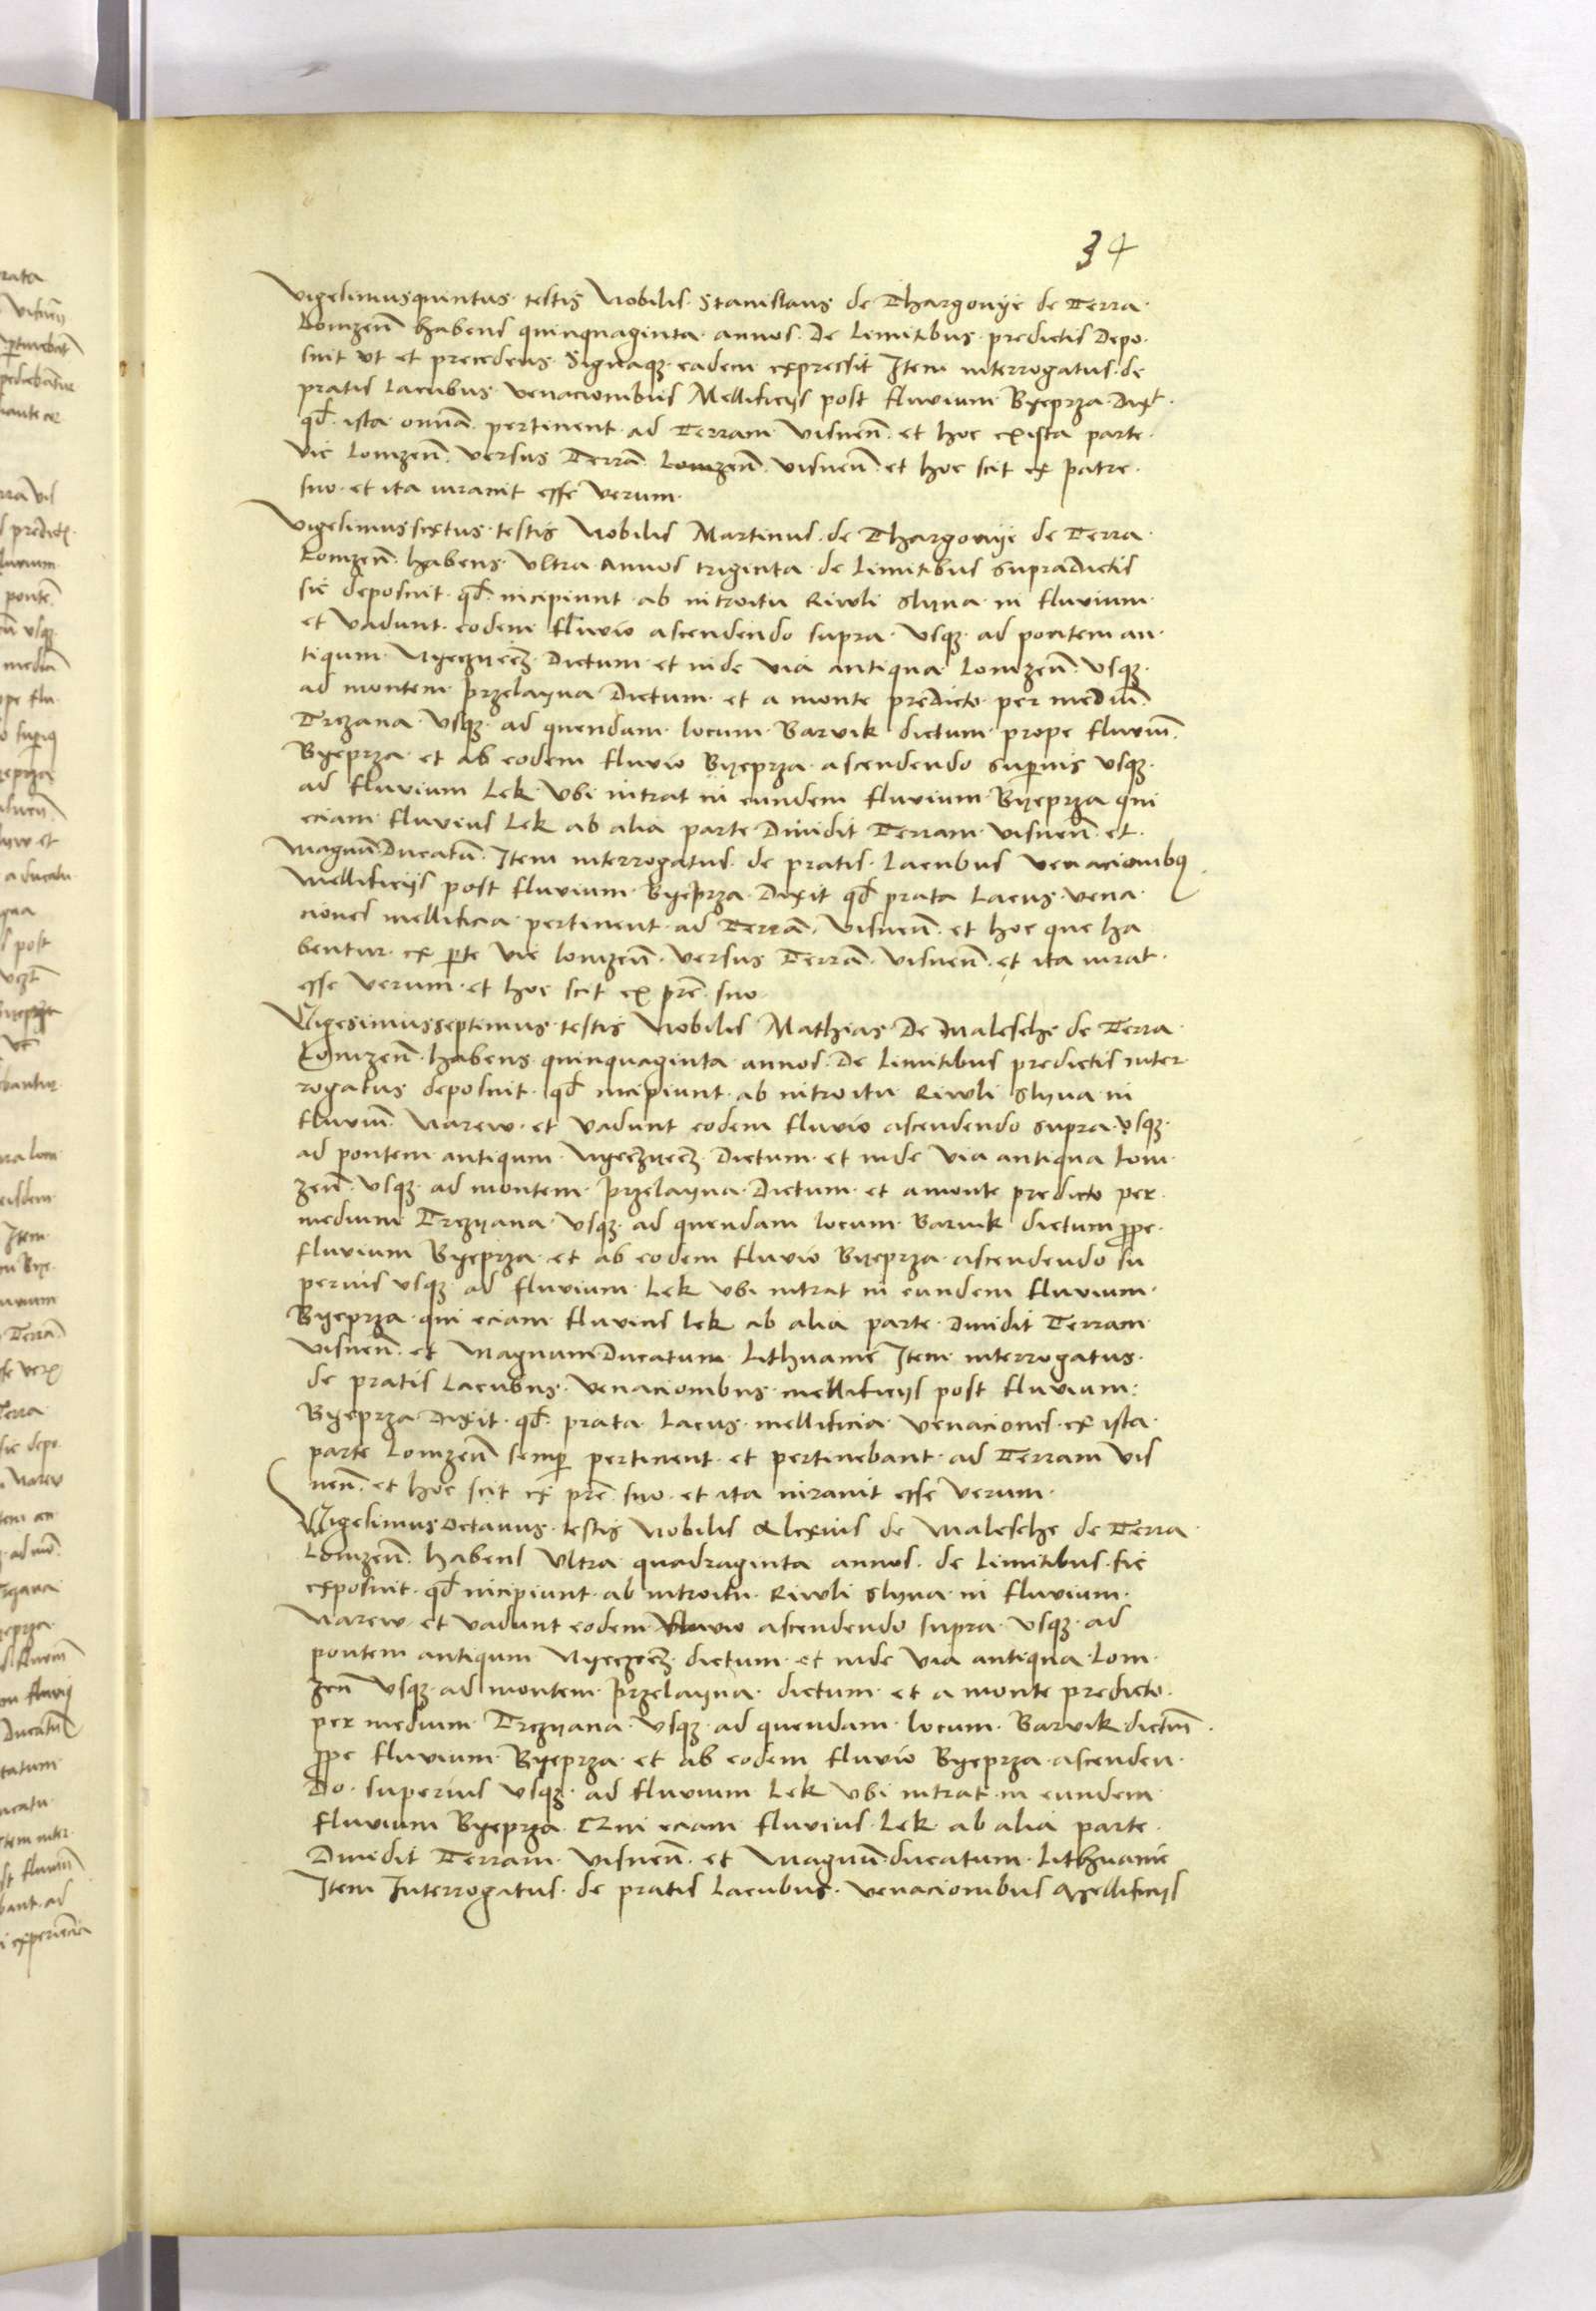 34
Vigesimusquintus testis Nobilis Stanislaus de Thargonye de Terra
Lomzen̄ habens quinquaginta annos De limitibus predictis Depo
suit vt et precedens Signaqꝫ eadem expressit Item interrogatus de
pratis Lacubus venacionibus Mellificijs post fluvium Byeprza Dixt
qd̄ ista omnia pertinent ad Terram Visnen̄ et hoc ex ista parte
vie Lomzen̄ versus Terrā Lomzen̄ visnen̄ et hoc scit ex patre
suo et ita iuravit esse verum
Vigesimussextus testis Nobilis Martinus de Thargonye de Terra
Lomzen̄ habens vltra annos triginta de limitibus supradictis
sic deposuit qd̄ incipiunt ab introitu Riwli Slyna in fluvium
et vadunt eodem fluvio ascendendo supra vsqꝫ ad pontem an
tiqum Dictum et inde via antiqua Lomzen̄ vsqꝫ
ad montem przelayna Dictum et a monte predicto per mediū
Trzana vsqꝫ ad quendam locum Barvik dictum prope fluviū
Byeprza et ab eodem fluvio Byeprza ascendendo supius vsqꝫ
ad fluvium Lek vbi intrat in eundem fluvium Byeprza qui
eciam fluvius Lek ab alia parte Dividit Terram visnen̄ et
Magnū Ducatū Item interrogatus de pratis Lacubus venacionibꝫ
Mellificijs post fluvium Byeprza Dixit qd̄ prata Lacus vena
ciones mellificia pertinent ad Terrā visnen̄ et hoc que ha
bentur ex pte vie lomzen̄ versus Terrā visnen̄ et ita iurat
esse verum et hoc scit ex pre suo
Vigesimusseptimus testis Nobilis Mathias De Malesche de Terra
Lomzen̄ habens quinquaginta annos De limitibus predictis inter
rogatus deposuit qd̄ incipiunt ab introitu Riwli Slyna in
fluviū Narew et vadunt eodem fluvio ascendendo supra vsqꝫ
ad pontem antiqum Dictum et inde via antiqua Lom
zen̄ vsqꝫ ad montem przelayna Dictum et a monte predicto per
medium Trzyana vsqꝫ ad quendam locum Barvik dictum ppe
fluvium Byeprza et ab eodem fluvio Byeprza ascendendo su
perius vsqꝫ ad fluvium Lek vbi intrat in eundem fluvium
Byeprza qui eciam fluvius lek ab alia parte Dividit Terram
visnen̄ et Magnum Ducatum Lithuanie Item interrogatus
de pratis Lacubus venacionibus mellificijs post fluvium
Byeprza Dixit qd̄ prata Lacus mellificia venaciones ex ista
parte Lomzen̄ semp pertinent et pertinebant ad Terram vis
nen̄ et hoc scit ex pre suo et ita iuravit esse verum
Vigesimusoctavus testis Nobilis Alexius de Malesche de Terra
Lomzen̄ habens vltra quadraginta annos de limitibus sic
exposuit qd̄ incipiunt ab introitu Riwli Slyna in fluvium
Narew et vadunt eodem fluvio ascendendo supra vsqꝫ ad
pontem antiqum dictum et inde via antiqua Lom
zen̄ vsqꝫ ad montem przelayna dictum et a monte predicto
per medium Trzyana vsqꝫ ad quendam locum Barvik dictū
ppe fluvium Byeprza et ab eodem fluvio Byeprza ascenden
Do superius vsqꝫ ad fluvium Lek vbi intrat in eundem
fluvium Byeprza Qui eciam fluvius Lek ab alia parte
Dividit Terram visnen̄ et Magnū ducatum Lithuanie
Item Interrogatus de pratis Lacubus venacionibus Mellificijs